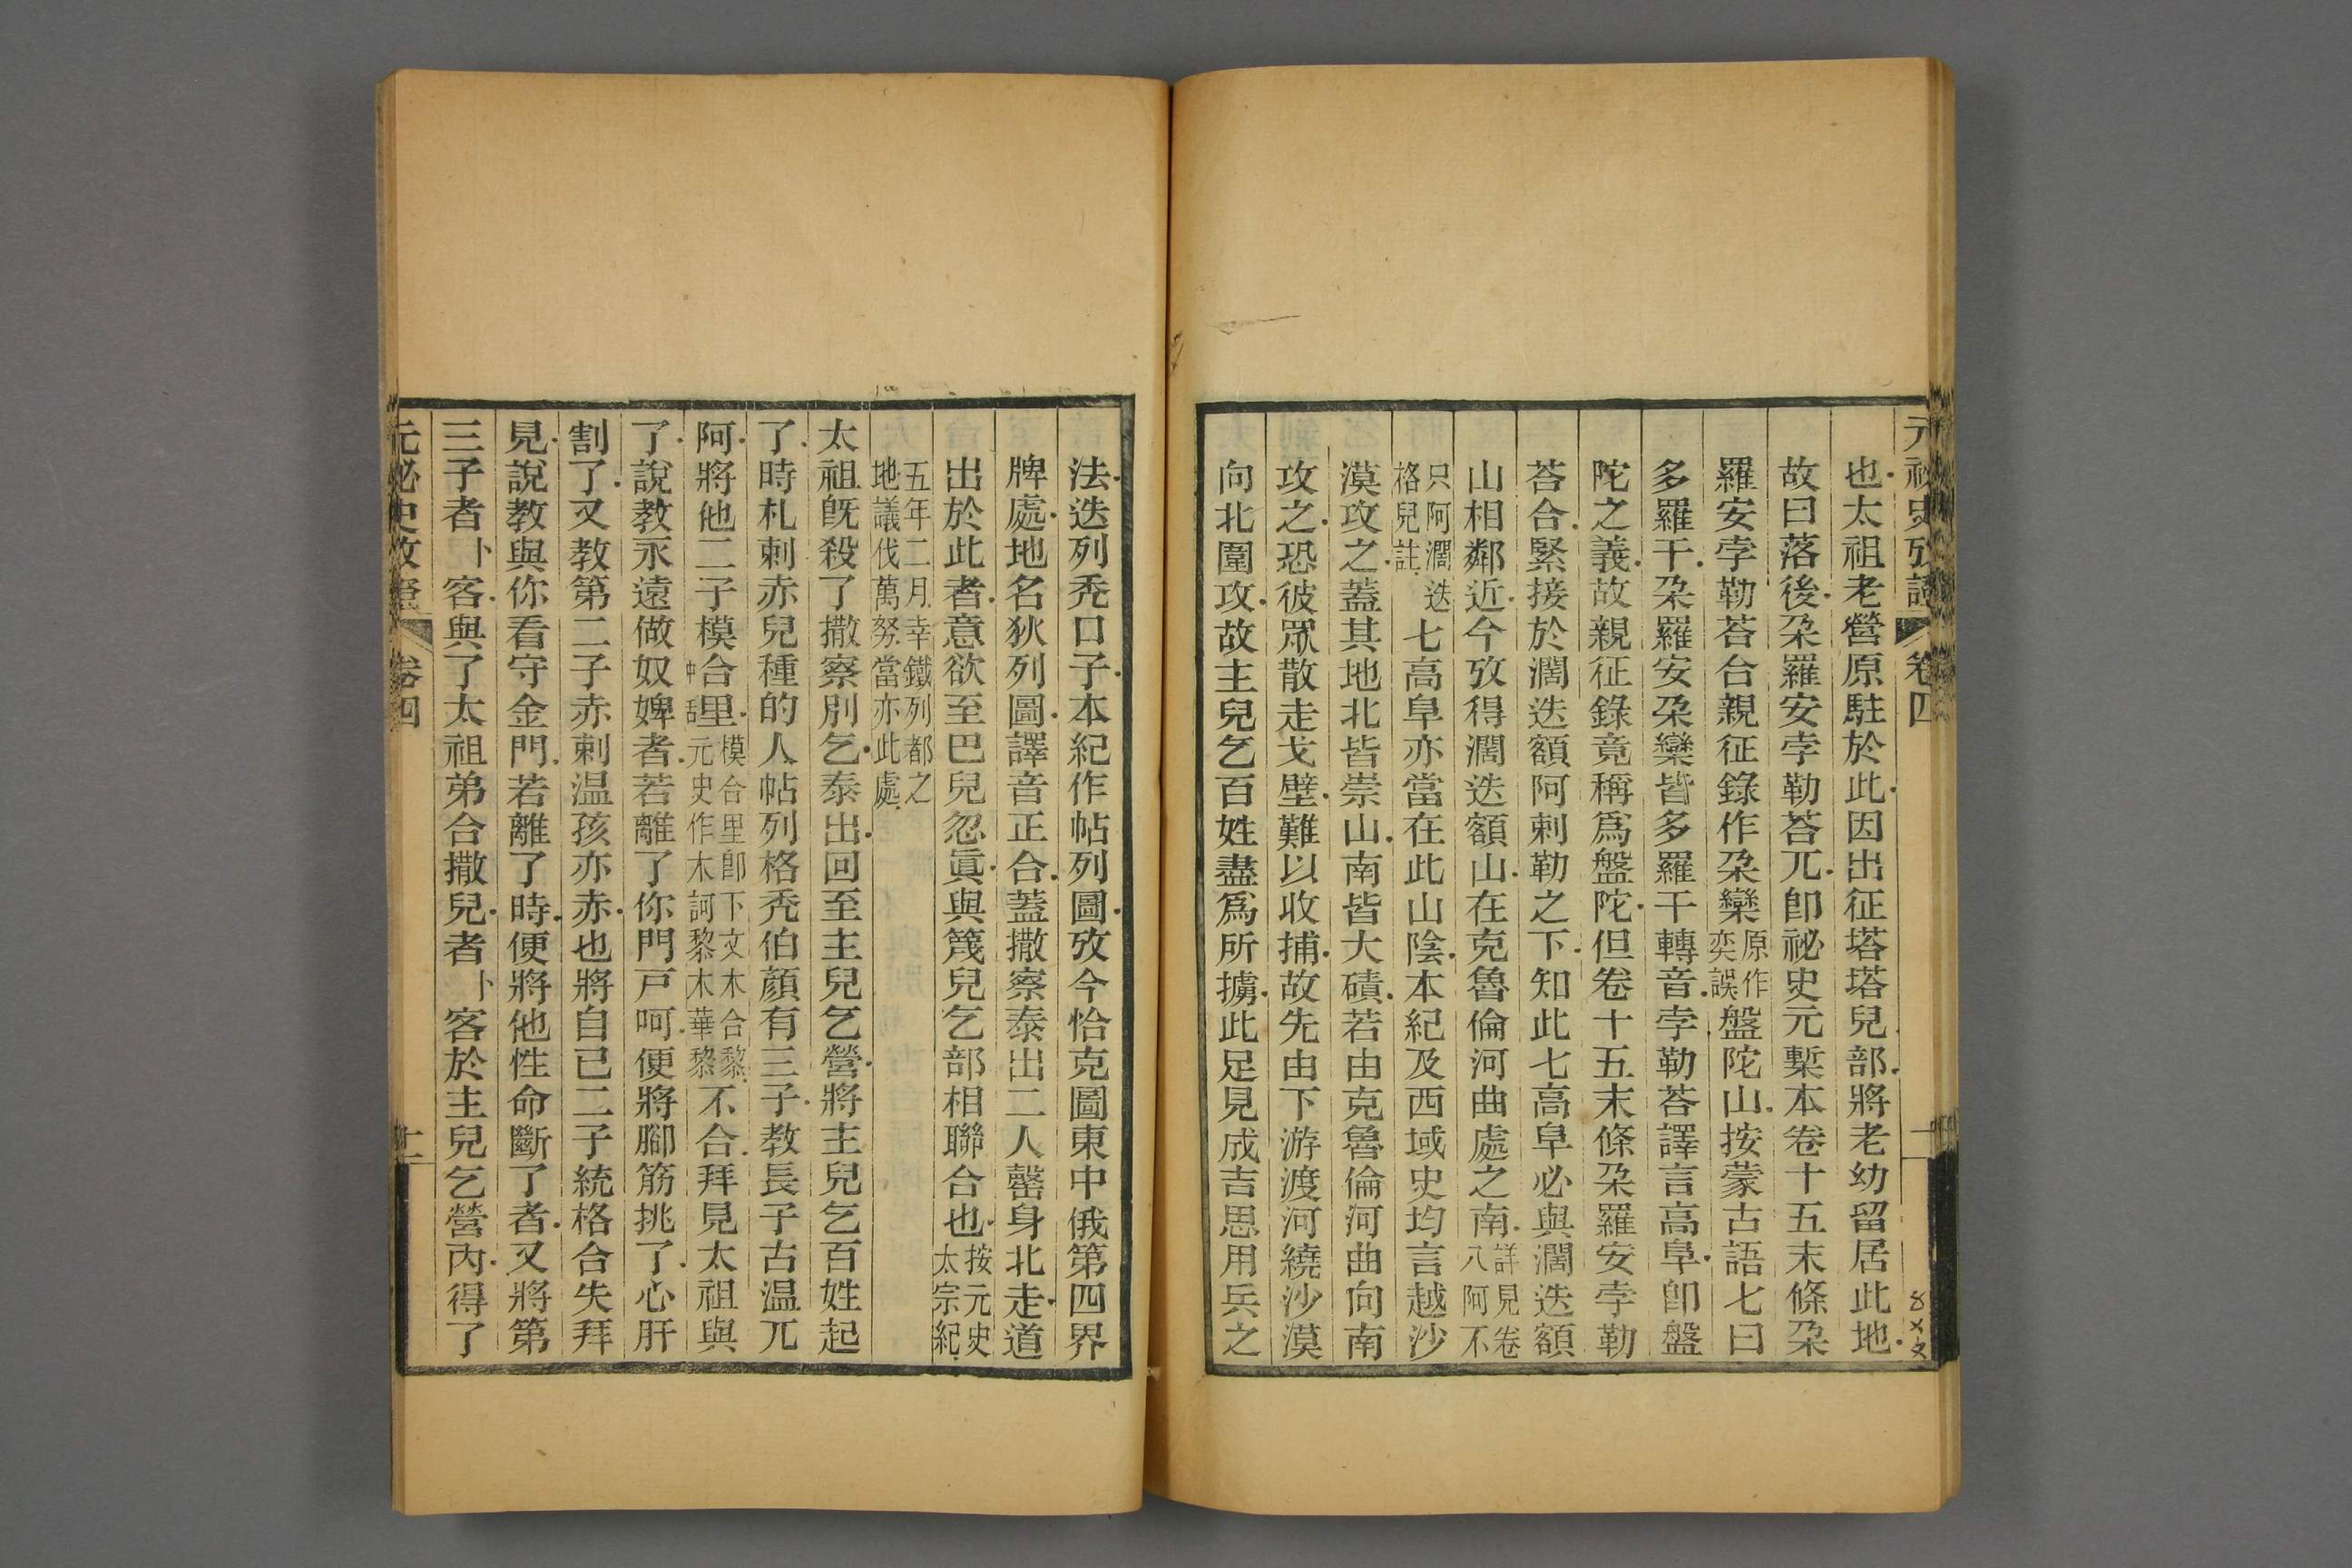 元祕史攷證 卷四
也太祖老營原駐於此因出征塔塔兒部將老幼留居此地
故曰落後朶羅安孛勒荅兀卽祕史元槧本卷十五末條朶
羅安孛勒荅合親征錄作朶欒原作奕誤盤陀山按蒙古語七曰
多羅干朶羅安朶欒皆多羅干轉音孛勒荅譯言高阜卽盤
陀之義故親征錄竟稱爲盤陀但卷十五末條朶羅安孛勒
荅合緊接於濶迭額阿剌勒之下知此七高阜必與濶迭額
山相鄰近今攷得濶迭額山在克魯倫河曲處之南詳見卷八阿不
只阿濶迭格兒註七高阜亦當在此山陰本紀及西域史均言越沙
漠攻之蓋其地北皆崇山南皆大磧若由克魯倫河曲向南
攻之恐彼眾散走戈壁難以收捕故先由下游渡河繞沙漠
向北圍攻故主兒乞百姓盡爲所擄此足見成吉思用兵之
法迭列禿口子本紀作帖列圖攷今恰克圖東中俄第四界
牌處地名狄列圖譯音正合蓋撒察泰出二人罄身北走道
出於此者意欲至巴兒忽眞與篾兒乞部相聯合也按元史太宗紀
五年二月幸鐵列都之地議伐萬努當亦此處
太祖旣殺了撒察別乞泰出回至主兒乞營將主兒乞百姓起
了時札剌赤兒種的人帖列格禿伯顏有三子教長子古溫兀
阿將他二子模中合里舌模合里卽下文木合黎元史作木訶黎木華黎不合拜見太祖與
了說教永遠做奴婢者若離了你門戶呵便將腳筋挑了心肝
割了又教第二子赤剌溫孩亦赤也將自已二子統格合失拜
見說教與你看守金門若離了時便將他性命斷了者又將第
三子者卜客與了太祖弟合撒兒者卜客於主兒乞營內得了
元祕史攷證 卷四 十一